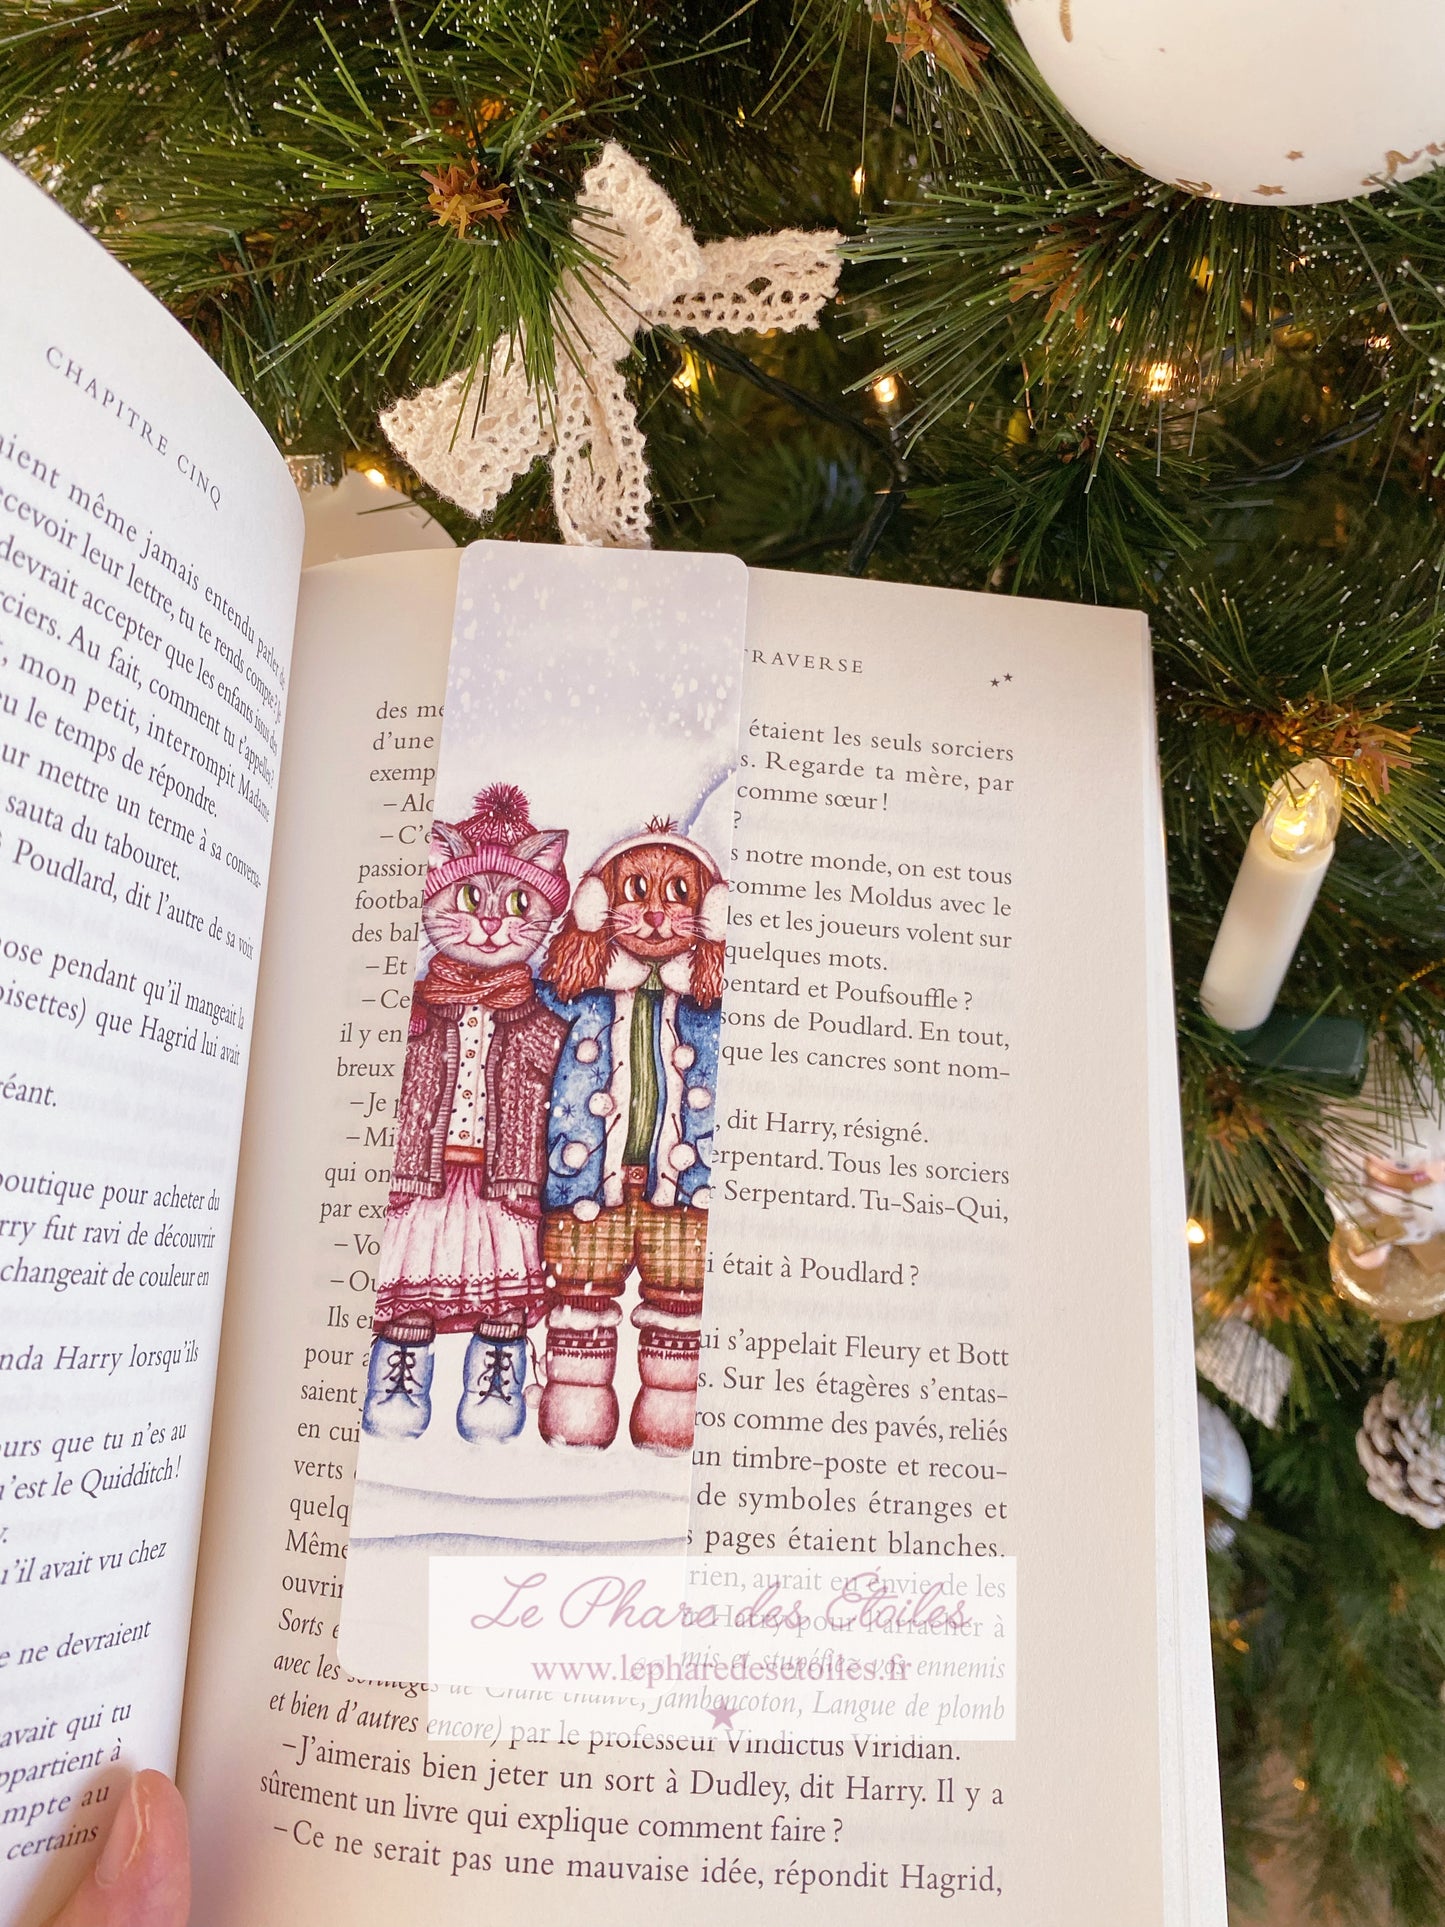 CHAPITRE CINQ
aient même jamais entendu parler de
ecevoir leur lettre, tu te rends compte ? Je
devrait accepter que les enfants issus des
rciers. Au fait, comment tu t'appelles ?
, mon petit, interrompit Madame
eu le temps de répondre.
ur mettre un terme à sa conversa-
sauta du tabouret.
à Poudlard, dit l'autre de sa voix
ose pendant qu'il mangeait la
oisettes) que Hagrid lui avait
réant.
boutique pour acheter du
rry fut ravi de découvrir
changeait de couleur en
nda Harry lorsqu'ils
ours que tu n'es au
u'est le Quidditch !
y.
u'il avait vu chez
e ne devraient
avait qui tu
ppartient à
mpte au
certains
TRAVERSE
des me
étaient les seuls sorciers
d'une
s. Regarde ta mère, par
exemp
comme sœur !
– Alo
?
– C'e
s notre monde, on est tous
passion
comme les Moldus avec le
footbal
les et les joueurs volent sur
des bal
quelques mots.
– Et
pentard et Poufsouffle ?
– Ce
sons de Poudlard. En tout,
il y en
que les cancres sont nom-
breux
– Je p
, dit Harry, résigné.
– Mi
erpentard. Tous les sorciers
qui on
r Serpentard. Tu-Sais-Qui,
par exe
– Vo
i était à Poudlard ?
– Ou
Ils en
ui s'appelait Fleury et Bott
pour a
s. Sur les étagères s'entas-
saient
ros comme des pavés, reliés
en cui
un timbre-poste et recou-
verts
de symboles étranges et
quelq
s pages étaient blanches.
Même
rien, aurait eu envie de les
ouvrir
Harry pour l'arracher à
Sorts e
mis et stupéfiez vos ennemis
avec les sortilèges de Crâne chauve, Jambencoton, Langue de plomb
et bien d'autres encore) par le professeur Vindictus Viridian.
– J'aimerais bien jeter un sort à Dudley, dit Harry. Il y a
sûrement un livre qui explique comment faire ?
– Ce ne serait pas une mauvaise idée, répondit Hagrid,
Le Phare des Étoiles
www.lepharedesetoiles.fr